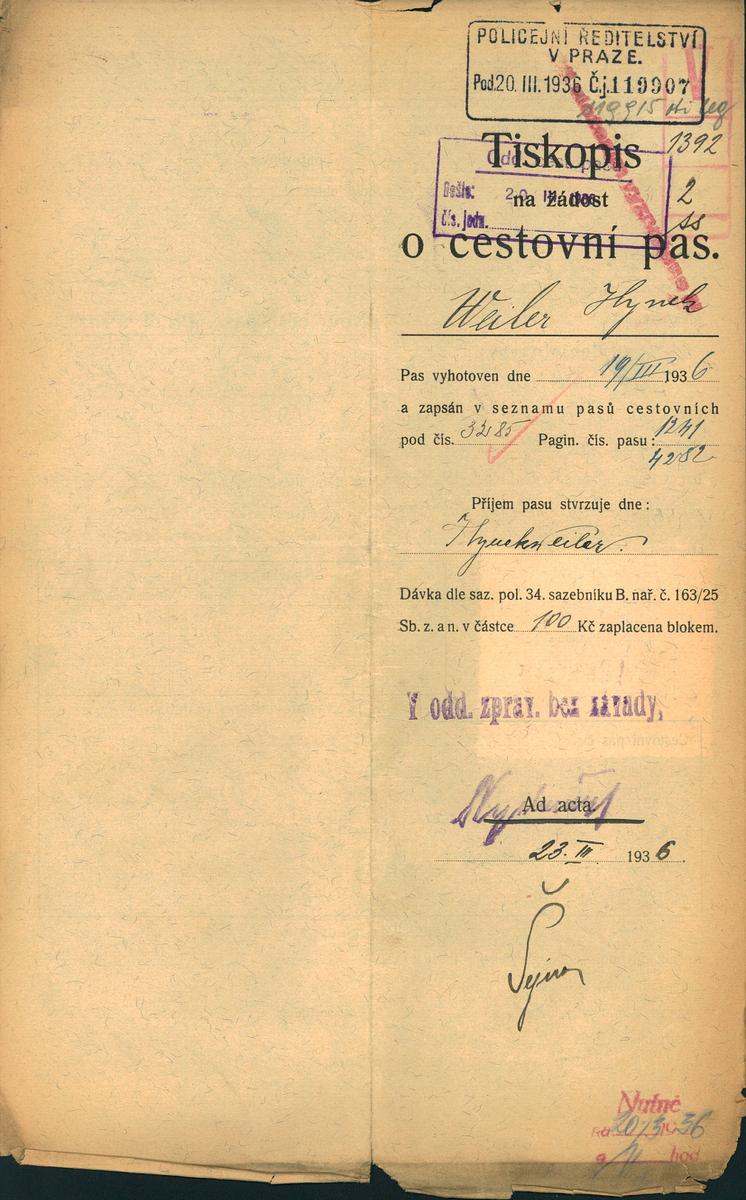 POLICEJNÍ ŘEDITELSTVÍ
V PRAZE.
Pod. 20. III. 1936 Č.j. 119907
1392
Tiskopis
Došlo: 20. III. 1936
2
na žádost
čís. jedn.
ss
o cestovní pas.
Weiler Hynek
Pas vyhotoven dne 19/III 1936
a zapsán v seznamu pasů cestovních
pod čís. 3285 Pagin. čís. pasu: 1241
4282
Příjem pasu stvrzuje dne:
Hynek Weiler.
Dávka dle saz. pol. 34. sazebníku B. nař. č. 163/25
Sb. z. a n. v částce 100 Kč zaplacena blokem.
V odd. zprav. bez závady,
Ad acta
23. III 1936.
Nutné
20/3 1936
hod